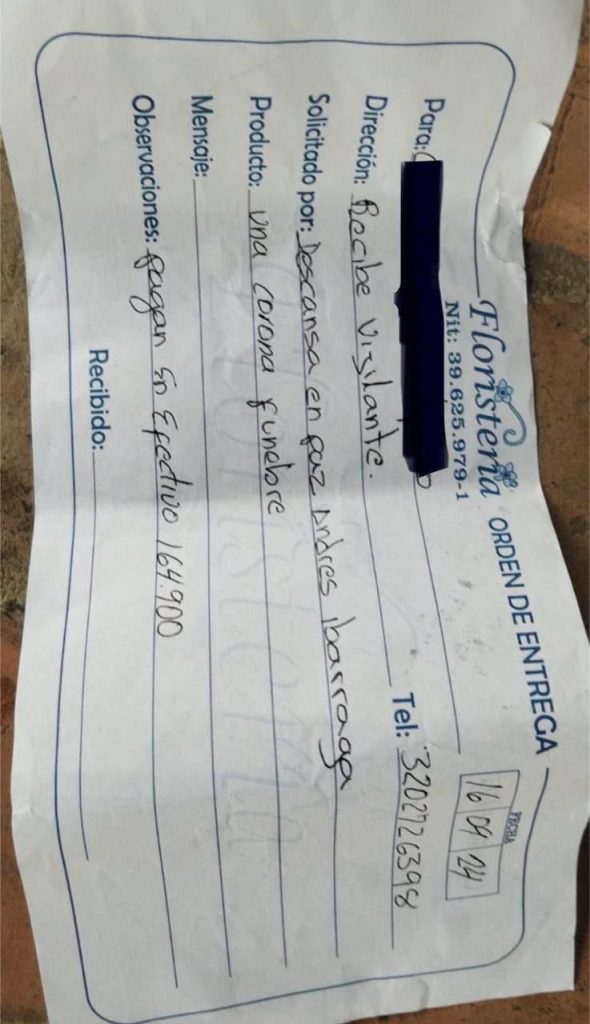 Floristeria ORDEN DE ENTREGA
Nit: 39.625.979-1
FECHA
16 09 24
Para:
Dirección: Recibe Vigilante. Tel: 3202726398
Solicitado por: Descansa en paz Andres ibarraga
Producto: una corona funebre
Mensaje:
Observaciones: pagan En Efectivo 164.900
Recibido:
Floristeria